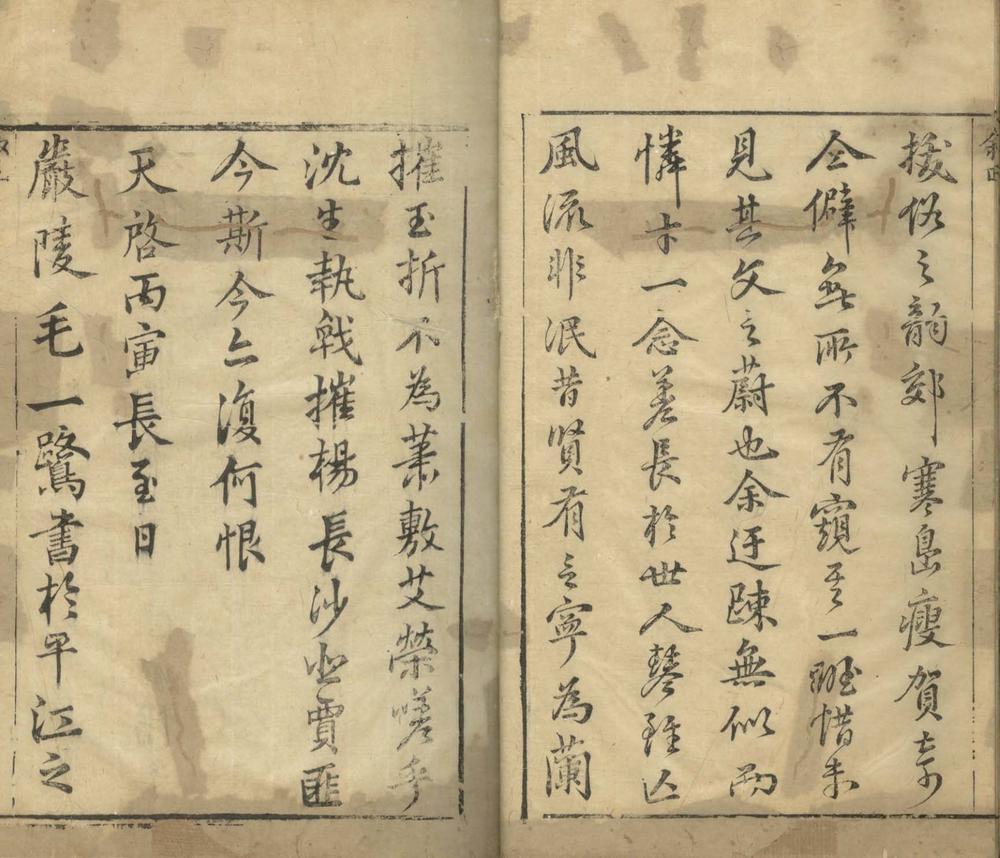 拔俗之韻郊寒島瘦賀奇
仝僻無所不有窺其一斑惜未
見其文之蔚也余迂疎無似而
憐才一念差長於世人琴雖亡
風流非泯昔賢有言寧為蘭
摧玉折不為蕭敷艾榮嗟乎
沈生執戟摧楊長沙賈匪
今斯今亦復何恨
天啓丙寅長至日
嚴陵毛一鷺書於平江之